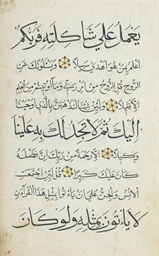 يعمل على شاكلته فربكم
اعلم بمن هو اهدى سبيلا ويسئلونك عن
الروح قل الروح من امر ربي وما اوتيتم من العلم
الا قليلا ولئن شئنا لنذهبن بالذي اوحينا
اليك ثم لا تجد لك به علينا
وكيلا الا رحمة من ربك ان فضله
كان عليك كبيرا قل لئن اجتمعت
الانس والجن على ان ياتوا بمثل هذا القرآن
لا ياتون بمثله ولو كان